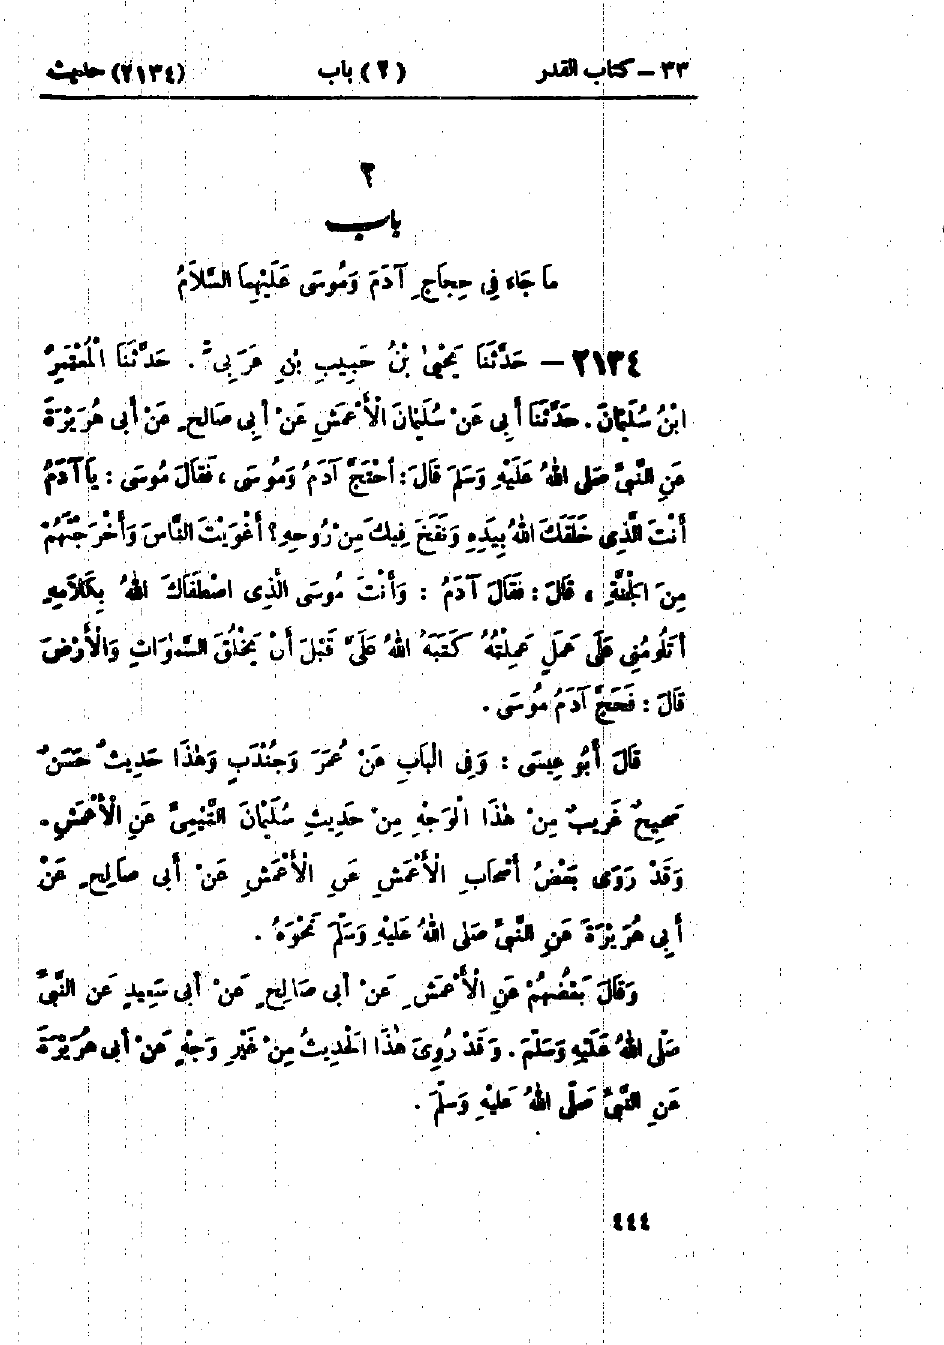 ٣٣ – كتاب القدر (٢) باب (٢١٣٤) حديث
٢
باب
مَا جَاءَ فِي حِجَاجِ آدَمَ وَمُوسَى عَلَيْهِمَا السَّلَامُ
٢١٣٤ – حَدَّثَنَا يَحْيَىٰ بْنُ حَبِيبِ بْنِ عَرَبِيٍّ . حَدَّثَنَا الْمُعْتَمِرُ
ابْنُ سُلَيْمَانَ . حَدَّثَنَا أَبِي عَنْ سُلَيْمَانَ الْأَعْمَشِ عَنْ أَبِى صَالِحٍ عَنْ أَبِى هُرَيْرَةَ
عَنِ النَّبِيِّ صَلى اللهُ عَلَيْهِ وَسَلمَ قَالَ : أحْتَجَّ آدَمُ وَمُوسَى ، فَقَالَ مُوسَى : يَا آدَمُ
أَنْتَ الَّذِى خَلَقَكَ اللهُ بِيَدِهِ وَنَفَخَ فِيكَ مِنْ رُوحِهِ ؟ أَغْوَيْتَ النَّاسَ وَأَخْرَجْتَهُمْ
مِنَ الجَنَّةِ ، قَالَ : فقَالَ آدَمُ : وَأَنْتَ مُوسَى الَّذِى اصْطَفَاكَ اللهُ بِكَلَامِهِ
أَتَلُومُنِى عَلَى عَمَلٍ عَمِلْتُهُ كَتَبَهُ اللهُ عَلَىَّ قَبْلَ أَنْ يَخْلُقَ السَّمٰوَاتِ وَالْأَرْضَ
قَالَ : فَحَجَّ آدَمُ مُوسَى .
قَالَ أَبُو عِيسَى : وَفِى الْبَابِ عَنْ عُمَرَ وَجُنْدَبٍ وَهٰذَا حَدِيثٌ حَسَنٌ
صَحِيحٌ غَرِيبٌ مِنْ هٰذَا الْوَجْهِ مِنْ حَدِيثِ سُلَيْمَانَ التَّيْمِىِّ عَنِ الْأَعْمَشِ .
وَقَدْ رَوَى بَعْضُ أَصْحَابِ الْأَعْمَشِ عَنِ الْأَعْمَشِ عَنْ أَبِى صَالِحٍ عَنْ
أَبِى هُرَيْرَةَ عَنِ النَّبِىِّ صَلى اللهُ عَلَيْهِ وَسَلَّمَ نَحْوَهُ .
وَقَالَ بَعْضُهُمْ عَنِ الْأَعْمَشِ عَنْ أَبِى صَالِحٍ عَنْ أَبِى سَعِيدٍ عَنِ النَّبِىِّ
صَلَّى اللهُ عَلَيْهِ وَسَلَّمَ . وَقَدْ رُوِىَ هٰذَا الْحَدِيثُ مِنْ غَيْرِ وَجْهٍ عَنْ أَبِى هُرَيْرَةَ
عَنِ النَّبِىِّ صَلَّى اللهُ عَلَيْهِ وَسَلَّمَ .
٤٤٤